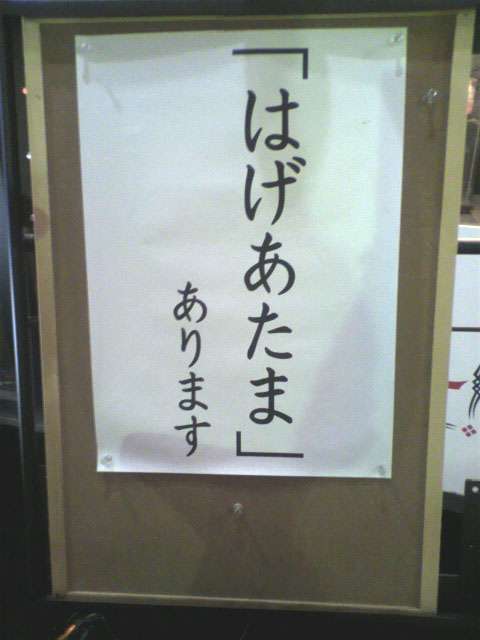 「はげあたま」
あります